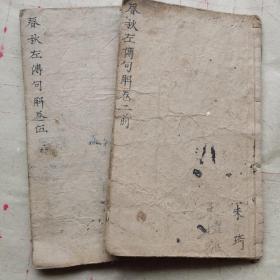 春秋左傳句解卷二前
朱琦
春秋左傳句解卷伍